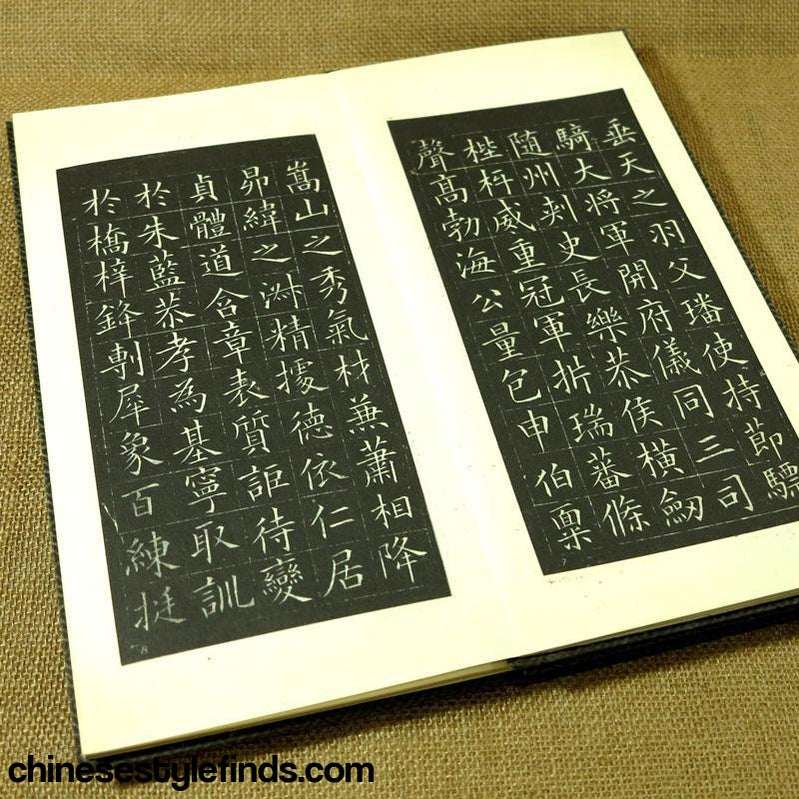 垂天之羽父璠使持節驃
騎大將軍開府儀同三司
隨州刾史長樂恭侯橫劒
梐枑威重冠軍析瑞蕃條
聲高勃海公量包申伯稟
7
嵩山之秀氣材蕪蕭相降
昴緯之淑精據德依仁居
貞體道含章表質詎待變
於朱藍恭孝為基寧取訓
於橋梓鋒剸犀象百練挺
8
chinesestylefinds.com